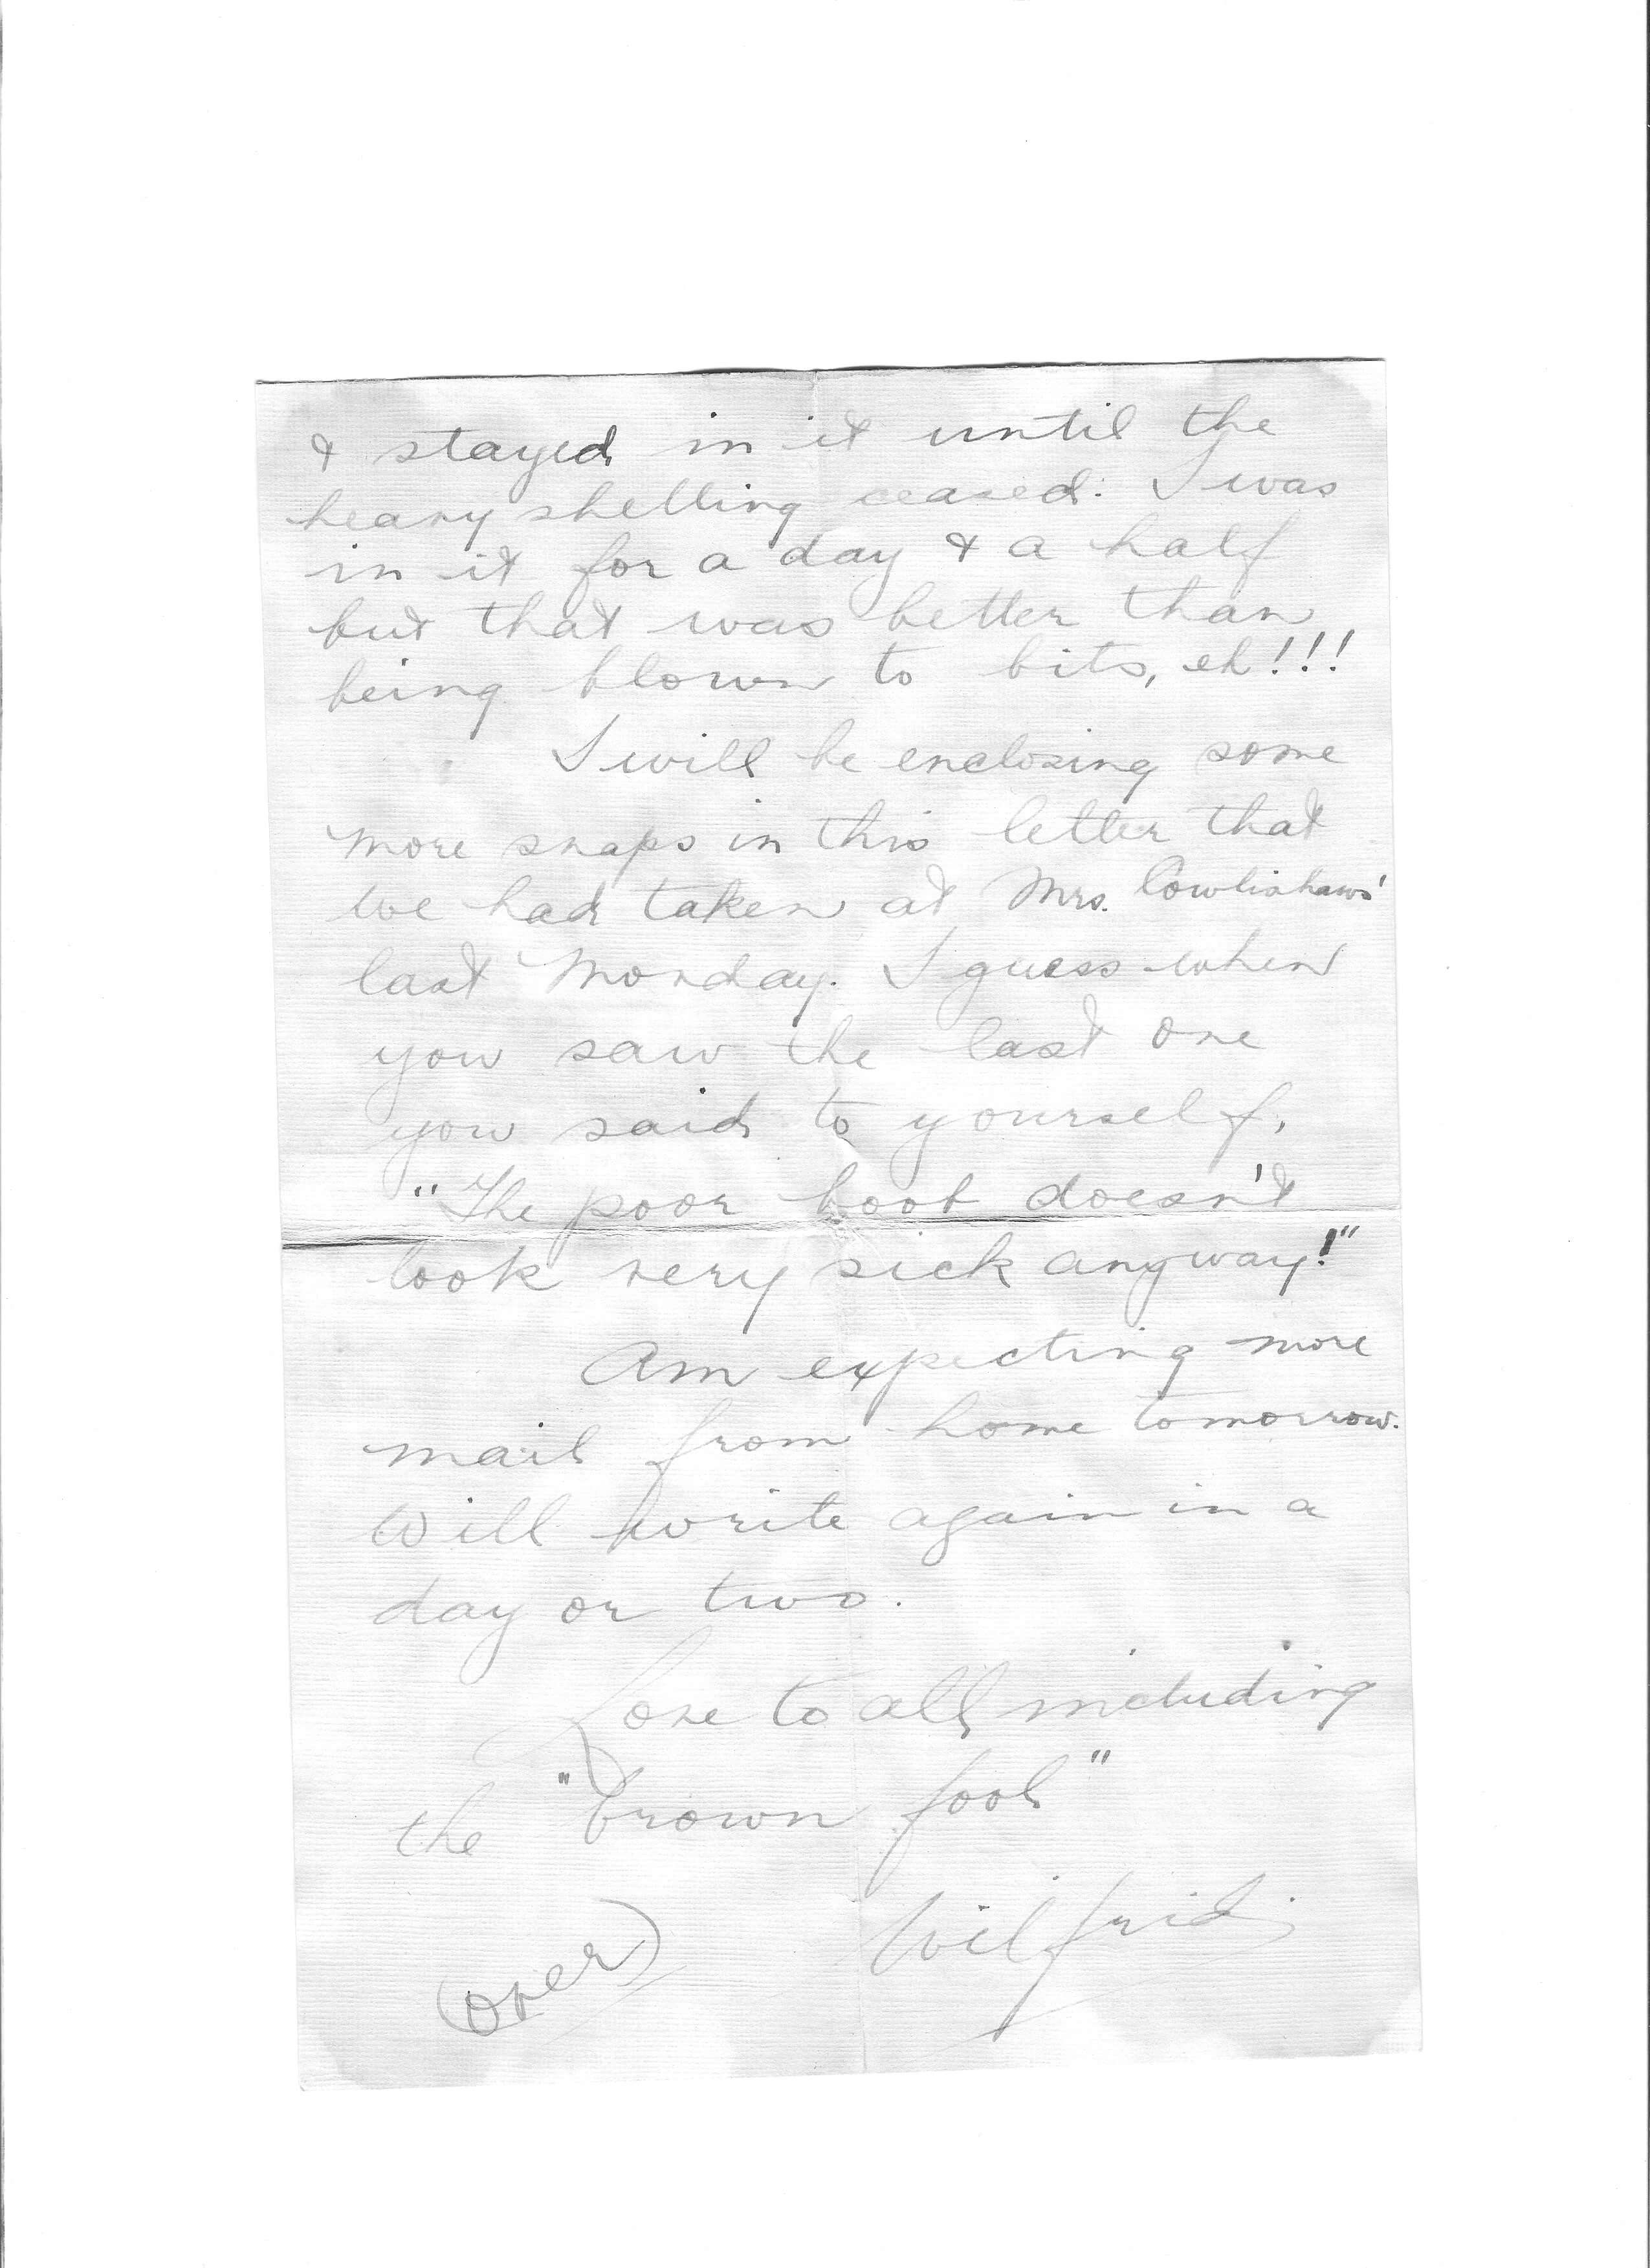 & stayed in it until the
heavy shelling ceased. I was
in it for a day & a half
but that was better than
being blown to bits, eh!!!
I will be enclosing some
more snaps in this letter that
we had taken at Mrs.
last Monday. I guess when
you saw the last one
you said to yourself,
"The poor boob doesn't
look very sick anyway!"
Am expecting more
mail from home tomorrow.
Will write again in a
day or two.
Love to all including
the "brown fool"
Wilfrid.
(over)